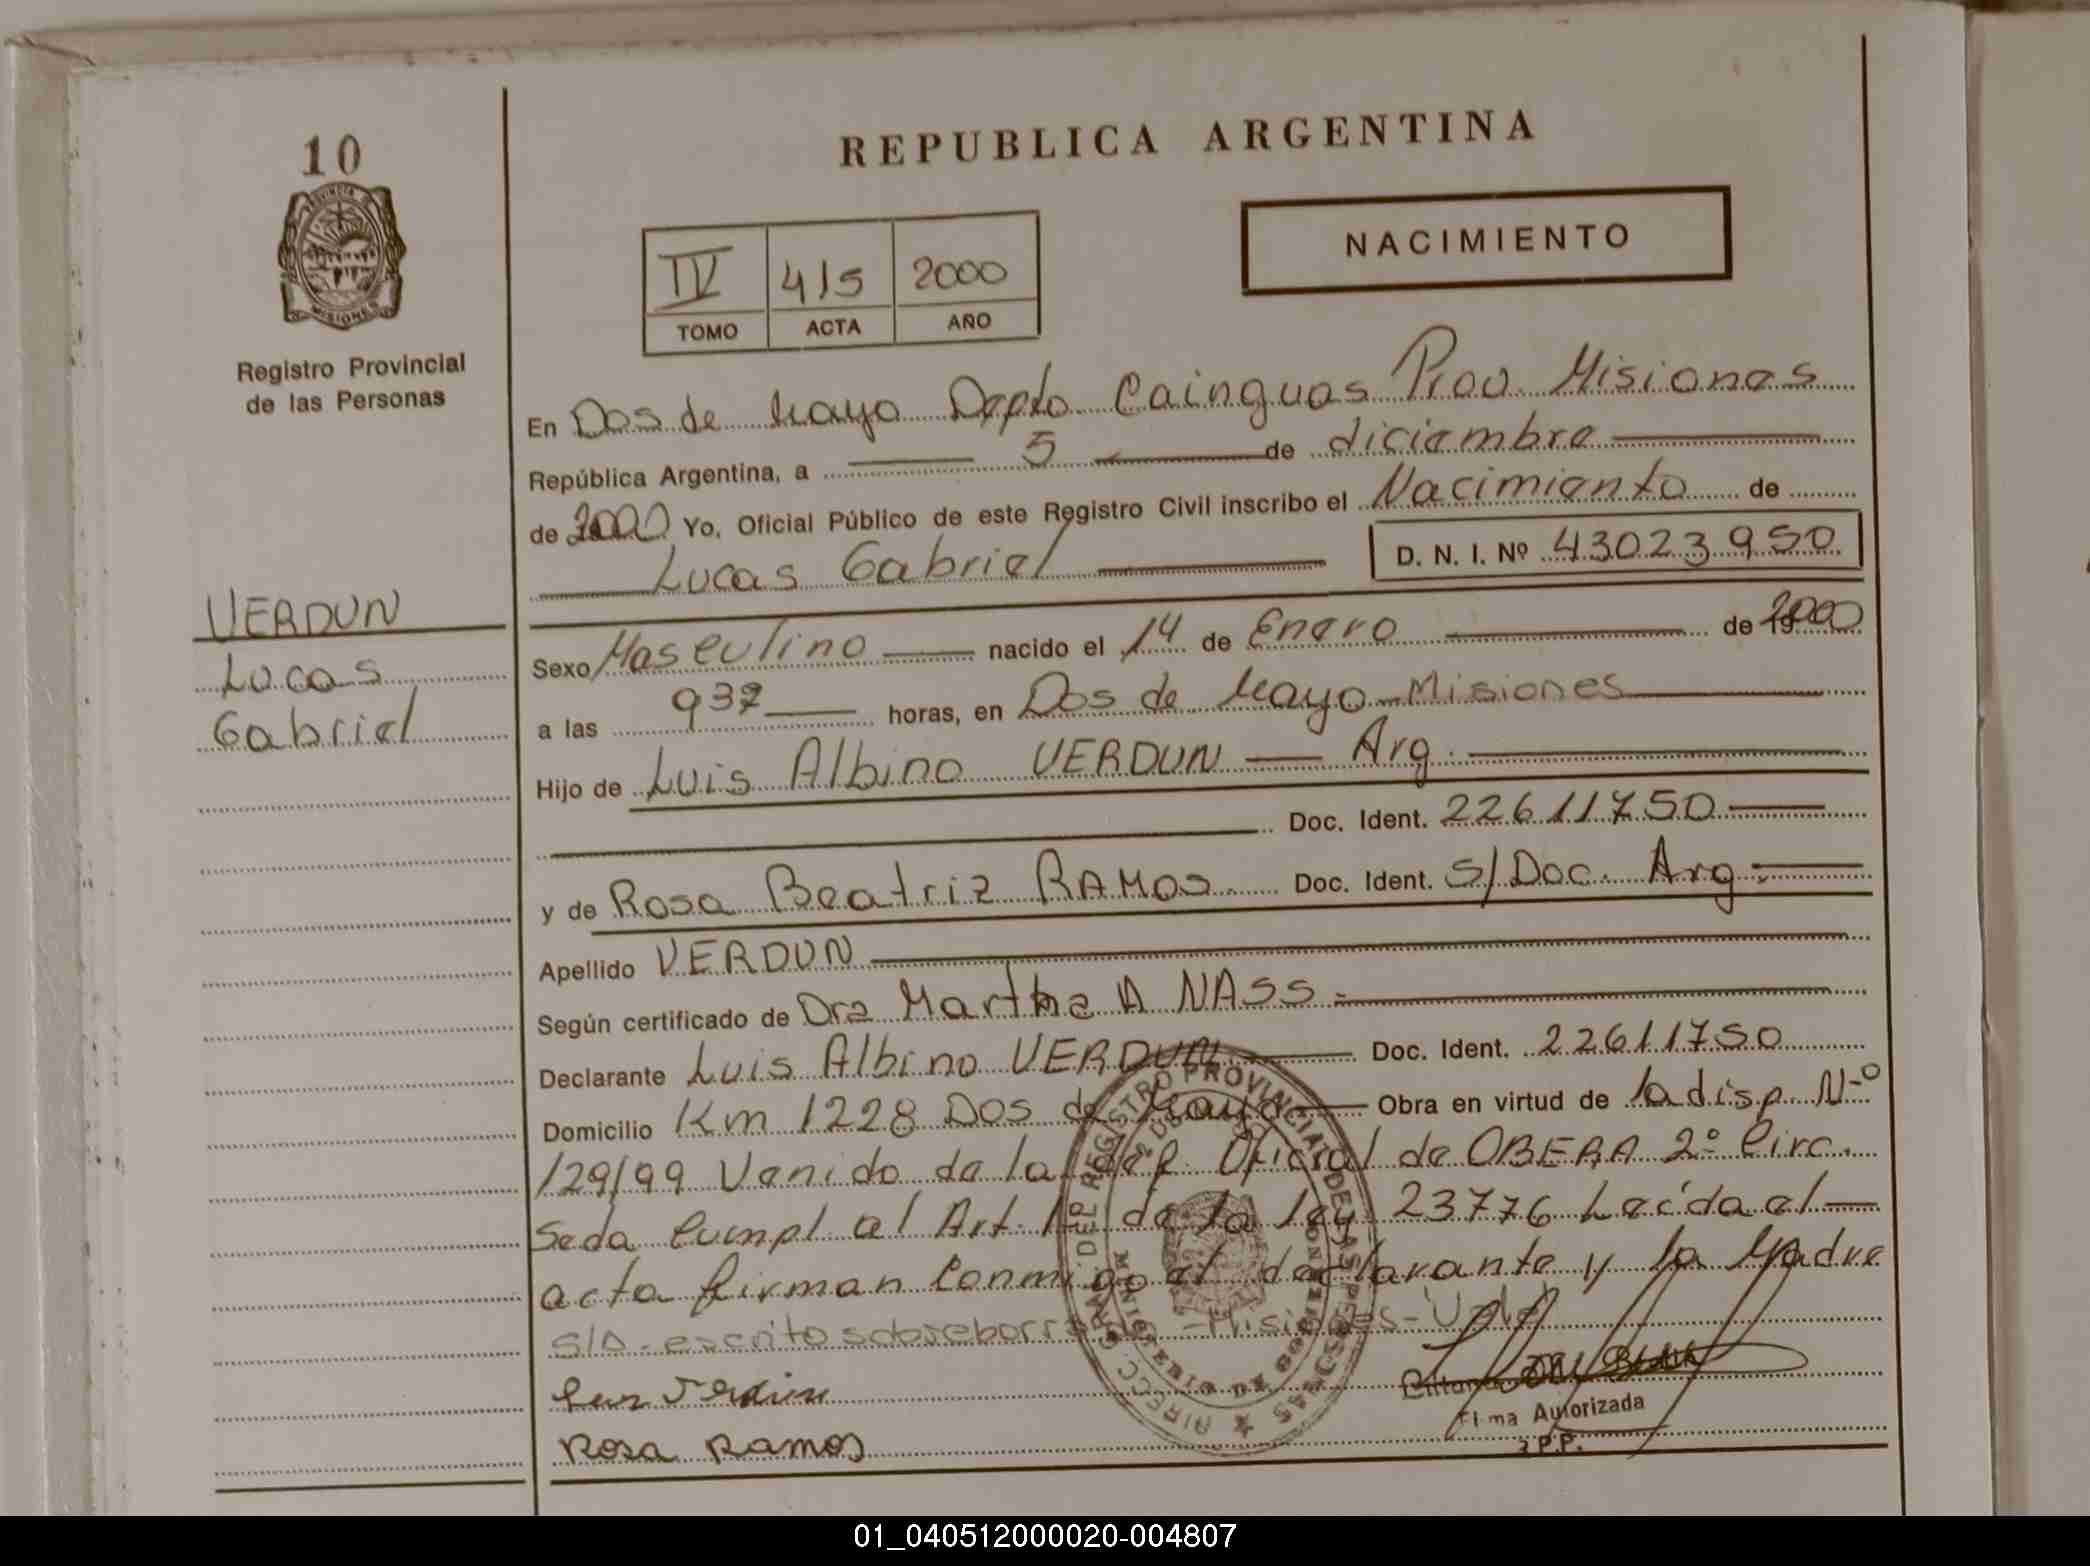 10
REPUBLICA ARGENTINA
PROVINCIA D
MISIONE
NACIMIENTO
IV 415 2000
TOMO ACTA AÑO
Registro Provincial
de las Personas
En Dos de Mayo Depto Cainguas Prov. Misiones
República Argentina, a 5 de diciembre
de 2000 Yo, Oficial Público de este Registro Civil inscribo el Nacimiento de
Lucas Gabriel D. N. I. Nº 43023950
VERDUN
Lucas
Gabriel
Sexo Masculino nacido el 14 de Enero de 2000
a las 937 horas, en Dos de Mayo - Misiones
Hijo de Luis Albino VERDUN — Arg.
Doc. Ident. 22611750
y de Rosa Beatriz RAMOS Doc. Ident. S/Doc. Arg.
Apellido VERDUN
Según certificado de Dra Martha A NASS
Declarante Luis Albino VERDUN Doc. Ident. 22611750
Domicilio Km 1228 Dos de Mayo Obra en virtud de la disp. Nº
129/99 Venido de la Oficial de OBERA 2º Circ.
Seda Cumpl al Art. de la ley 23776 Leída el
acta firman Conmigo el declarante y la Madre
S/D - escrito sobre - Misiones - Vale
Luis Verdun
Rosa Ramos
Firma Autorizada
R.P.P.
REGISTRO PROVINCIAL DE LAS PERSONAS
MINISTERIO DE GOBIERNO
01_040512000020-004807